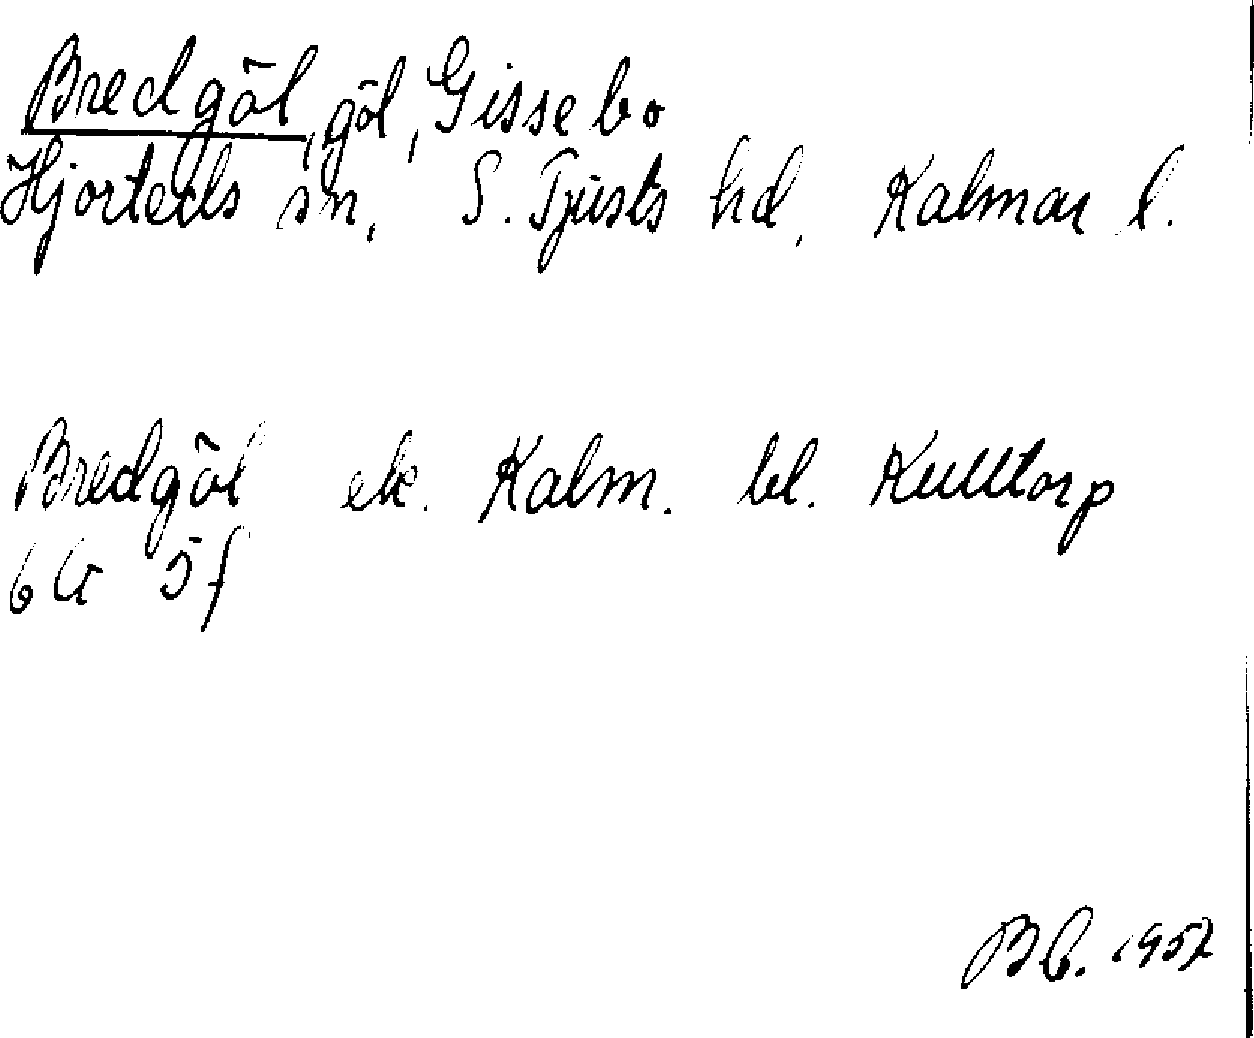 Bredgöl, göl, Gissebo
Hjorteds sn, S. Tjusts hd, Kalmar l.
Bredgöl ek. Kalm. bl. Kulltorp
6G 5f
BC. 1957